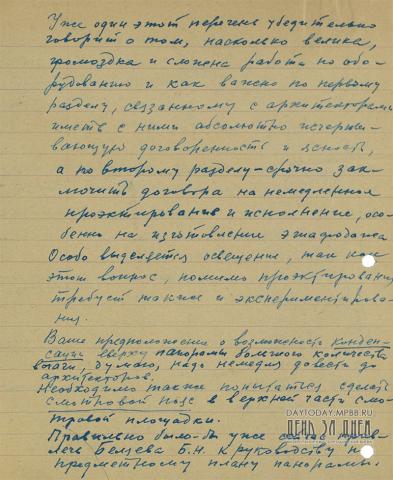 Уже один этот перечень убедительно
говорит о том, насколько велика,
громоздка и сложна работа по обо-
рудованию и как важно по первому
разделу, связанному с архитекторами
иметь с ними абсолютно исчерпы-
вающую договоренность и ясность,
а по второму разделу - срочно зак-
лючить договора на немедленное
проэктирование и исполнение, осо-
бенно на изготовление
Особо выделяется освещение, так как
этот вопрос, помимо проэктирования
требует также и экспериментирова-
ния.
Ваше предположение о возможности конден-
сации вверху панорамы большого количества
влаги, думаю, надо немедля довести до
архитекторов.
Необходимо также попытаться сделать
смотровой пояс в верхней части смо-
тровой площадки.
Правильно было-бы уже сейчас прив-
лечь Беляева Б.Н. к руководству
предметному плану панорамы.
DAYTODAY.MPBB.RU
ДЕНЬ ЗА ДНЕМ